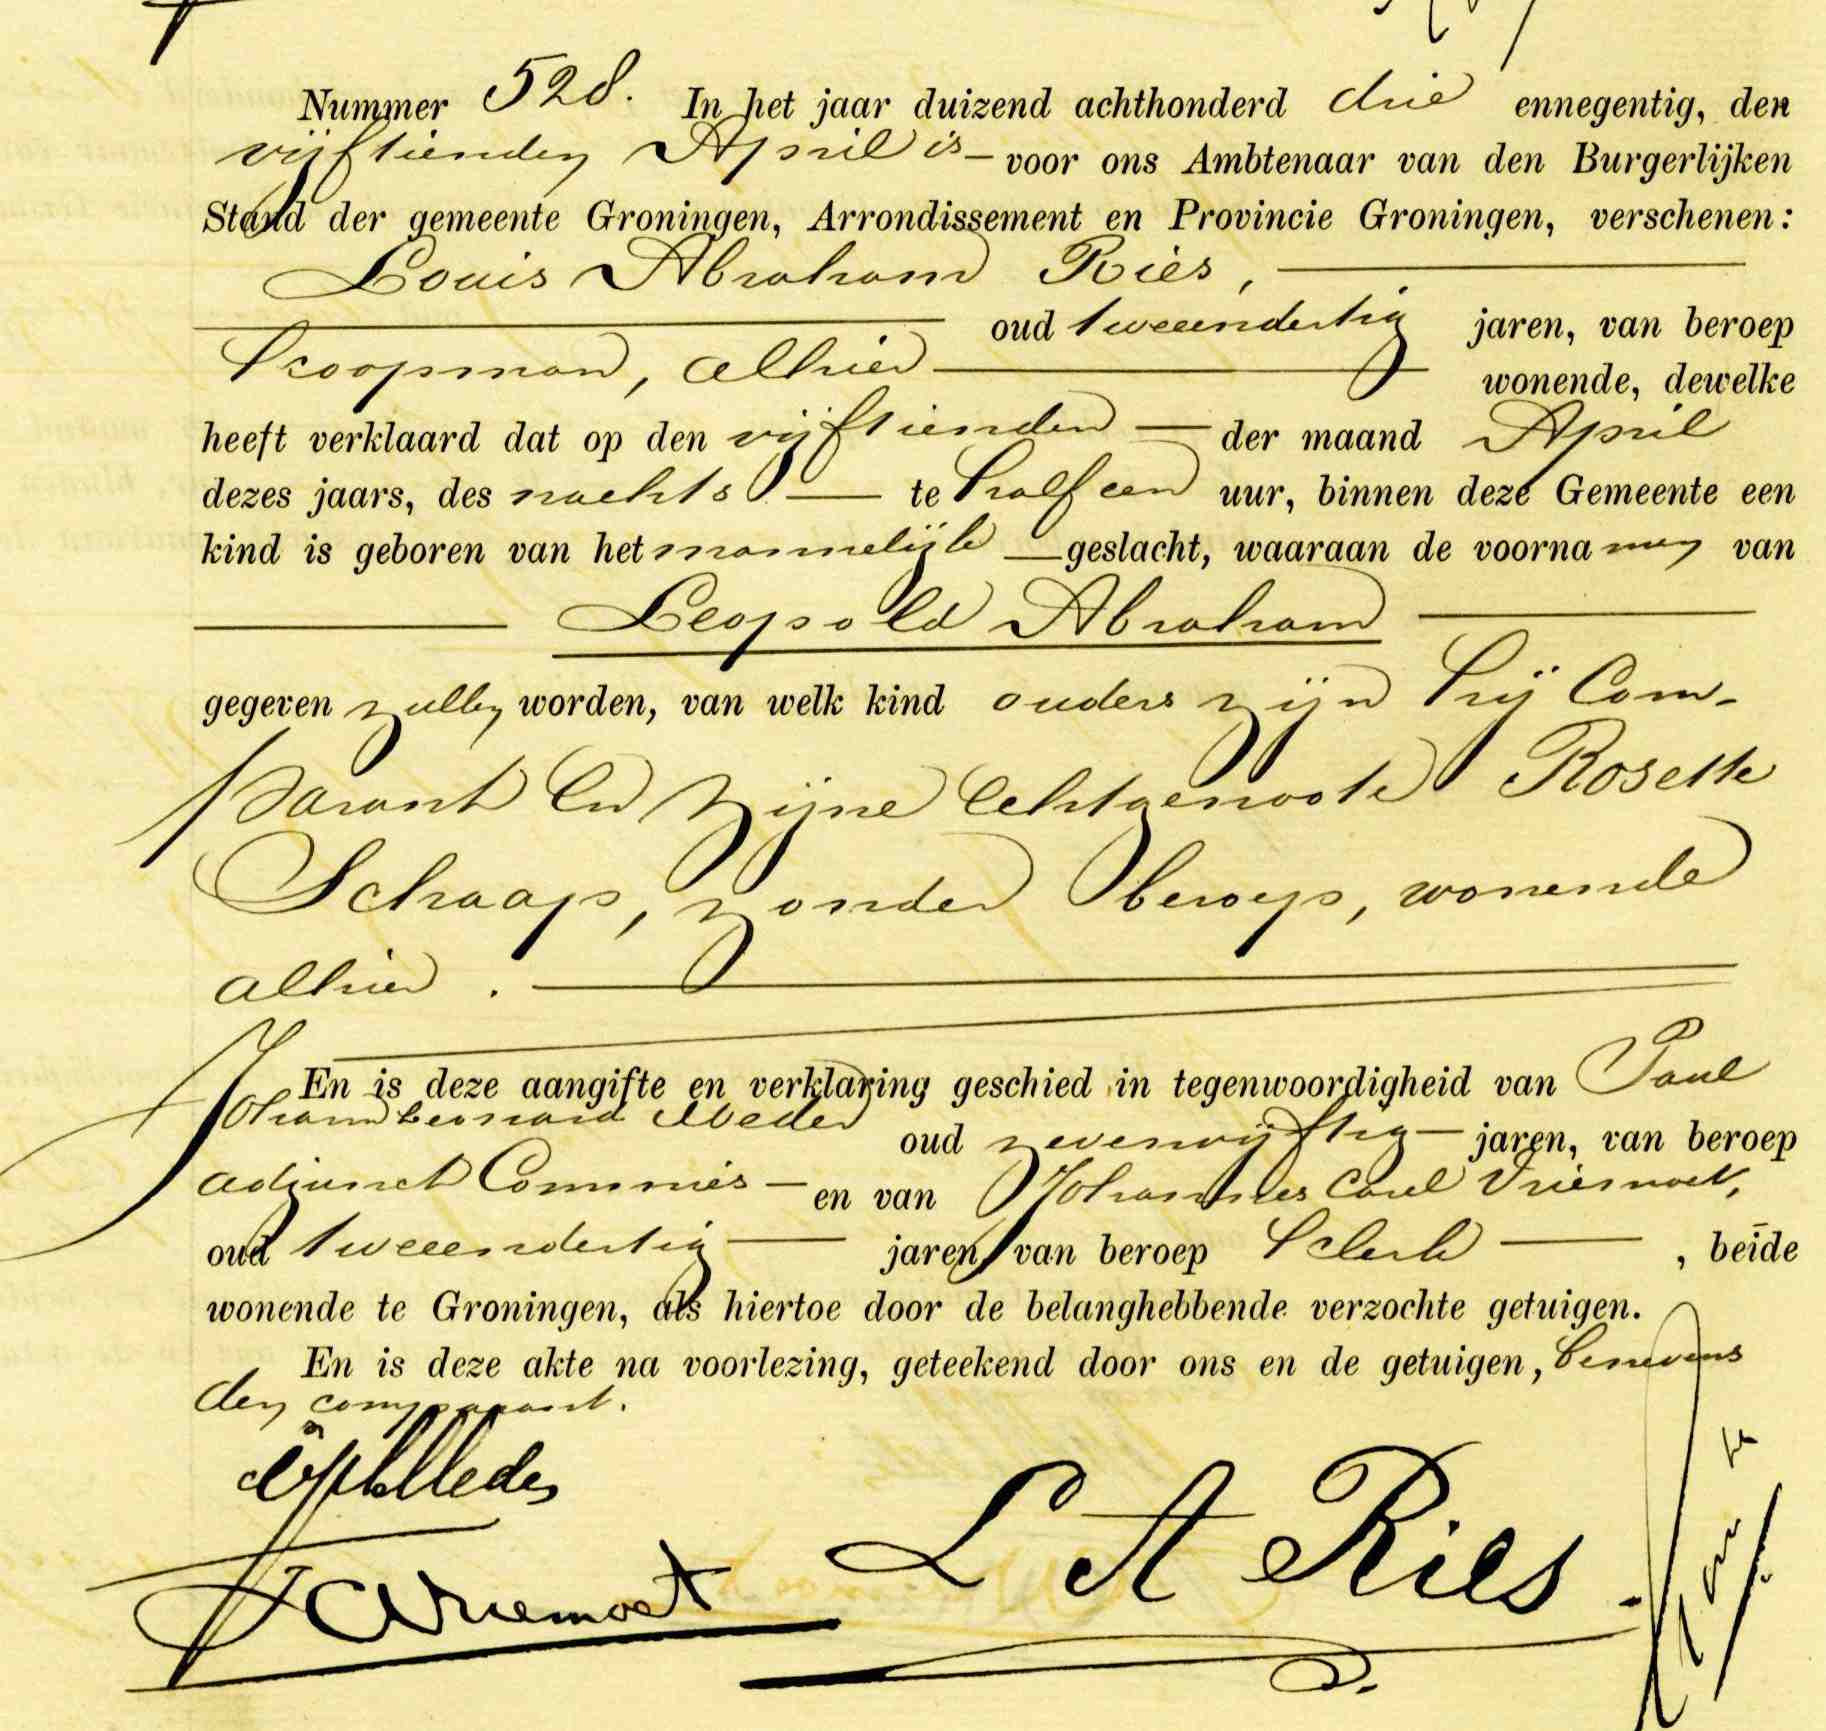 Nummer 528. In het jaar duizend achthonderd drie ennegentig, den
vijftienden April is voor ons Ambtenaar van den Burgerlijken
Stand der gemeente Groningen, Arrondissement en Provincie Groningen, verschenen:
Louis Abraham Ries,
oud tweeendertig jaren, van beroep
koopman, alhier wonende, dewelke
heeft verklaard dat op den vijftienden der maand April
dezes jaars, des nachts te half een uur, binnen deze Gemeente een
kind is geboren van het mannelijk geslacht, waaraan de voornamen van
Leopold Abraham
gegeven zullen worden, van welk kind ouders zijn hij Com-
parant en zijne echtgenoote Rosette
Schaap, zonder beroep, wonende
alhier.
En is deze aangifte en verklaring geschied in tegenwoordigheid van Paul
Johann Leonard Meder oud zevenvijftig jaren, van beroep
adjunct Commies en van Johannes Carel Vriemoet,
oud tweeendertig jaren, van beroep klerk, beide
wonende te Groningen, als hiertoe door de belanghebbende verzochte getuigen.
En is deze akte na voorlezing, geteekend door ons en de getuigen, benevens
den comparant.
Meder
JCVriemoet L A Ries.